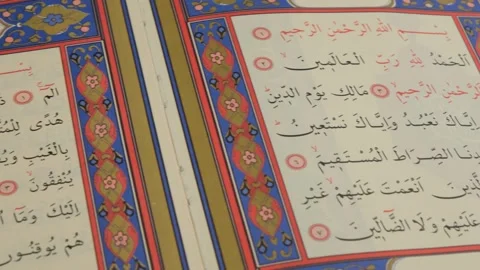 بِسْمِ اللّٰهِ الرَّحْمٰنِ الرَّحِيمِ ١
اَلْحَمْدُ لِلّٰهِ رَبِّ الْعَالَمِينَ ٢
اَلرَّحْمٰنِ الرَّحِيمِ ٣ مَالِكِ يَوْمِ الدِّينِ
اِيَّاكَ نَعْبُدُ وَاِيَّاكَ نَسْتَعِينُ
دِنَا الصِّرَاطَ الْمُسْتَقِيمَ ٦
الَّذِينَ اَنْعَمْتَ عَلَيْهِمْ غَيْرِ
عَلَيْهِمْ وَلَا الضَّالِّينَ ٧
الٓمٓ ١
هُدًى
بِالْغَيْبِ
يُنْفِقُونَ ٣
اِلَيْكَ وَمَا
هُمْ يُوقِنُونَ